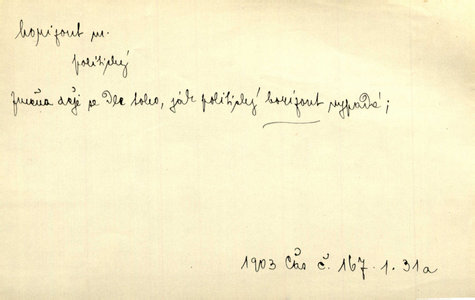 horizont m.
politický
změna děje se dle toho, jak politický horizont vypadá;
1903 Čas č. 167. 1. 31a